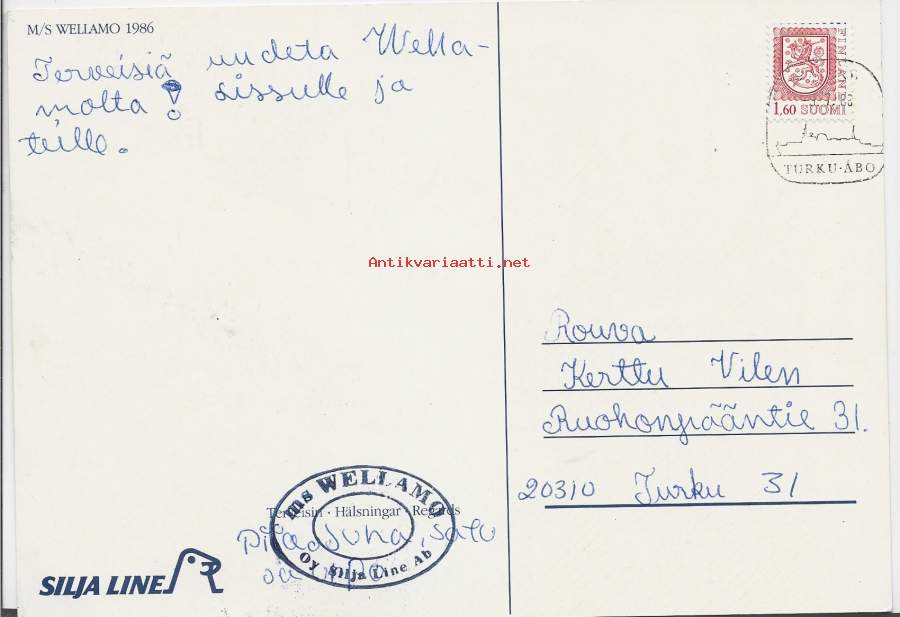 M/S WELLAMO 1986
Terveisiä uudeta Wella-
molta! Sissulle ja
teille.
FINLAND
1,60 SUOMI
TURKU·ÅBO
Antikvariaatti.net
Rouva
Kerttu Vilen
Ruohonpääntie 31.
20310 Turku 31
ms WELLAMO
Oy Silja Line Ab
Terveisin · Hälsningar · Regards
Juha, Satu
SILJA LINE